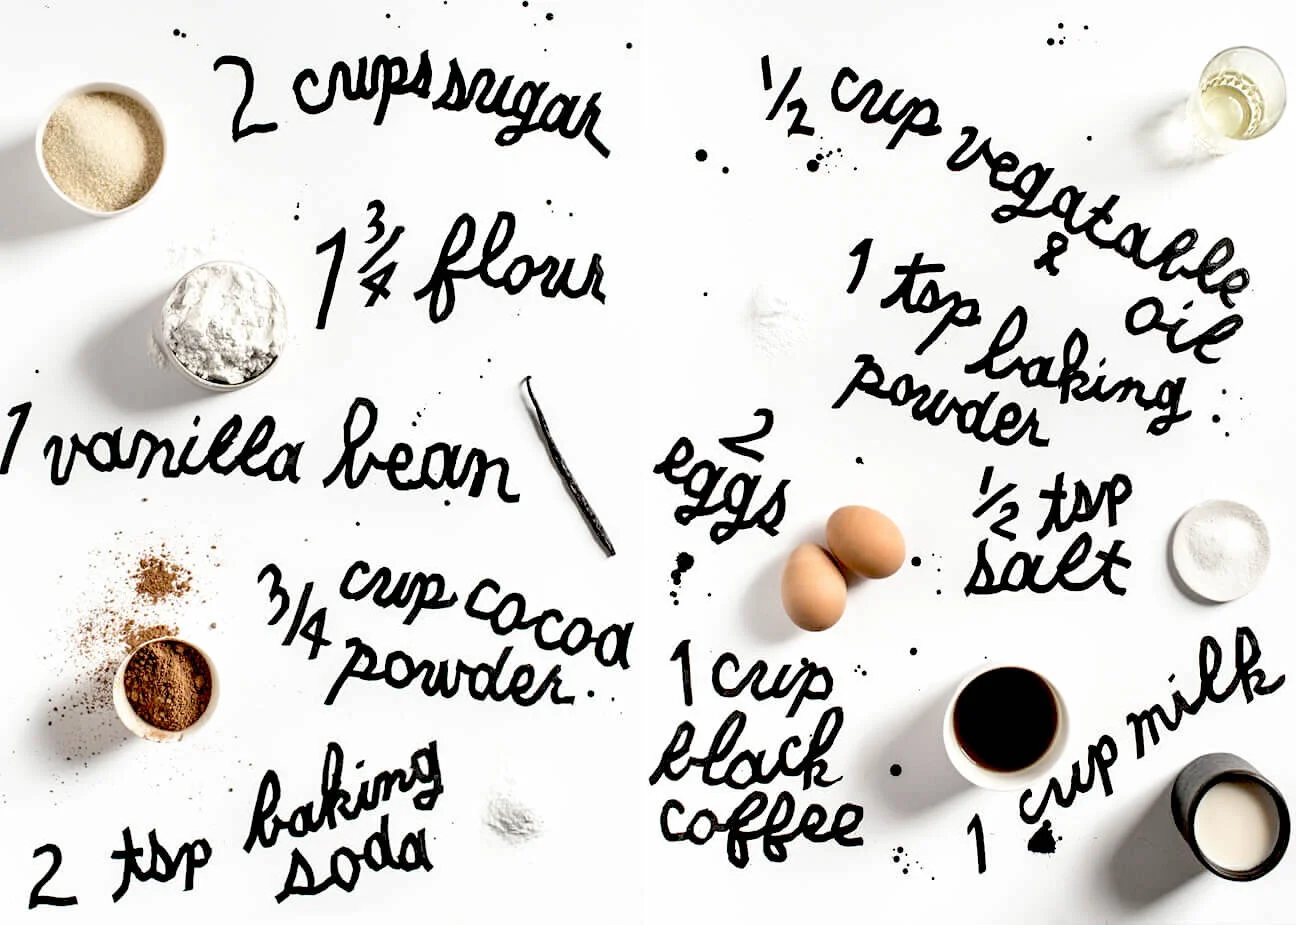 2 cups sugar
1 3/4 flour
1 vanilla bean
3/4 cup cocoa
powder
2 tsp baking
soda
1/2 cup vegatable
oil
1 tsp baking
powder
2
eggs
1/2 tsp
salt
1 cup
black
coffee
1 cup milk